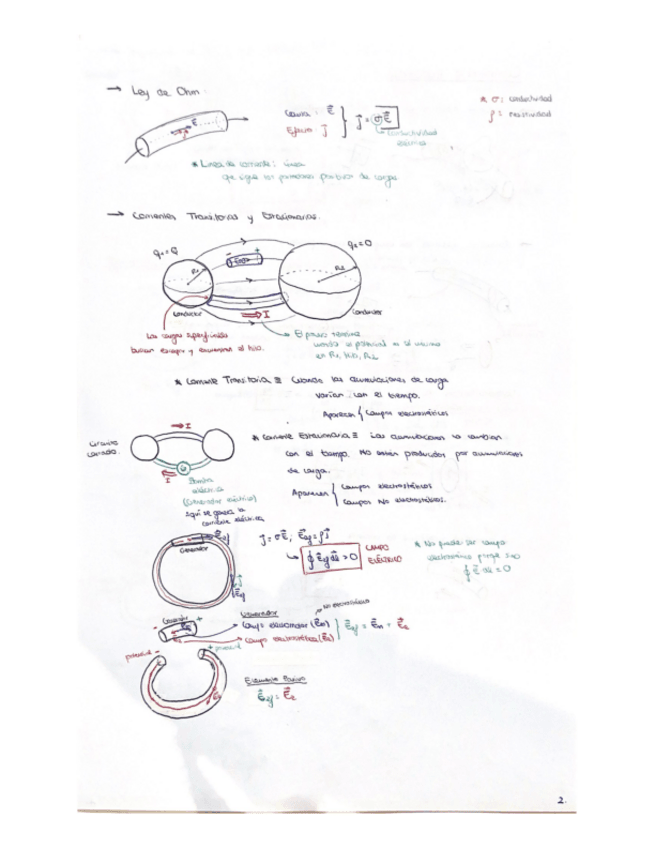 → Ley de Ohm:
Causa: E⃗
Efecto: J⃗
J⃗ = σE⃗
conductividad eléctrica
* σ: conductividad
ρ: resistividad
E⃗
* Linea de corriente: linea
que sigue los portadores positivos de cargas
→ Corrientes Transitorias y Estacionarias.
q₁=Q
q₂=0
R₁
R₂
- +
Conductor
Conductor
⇒ I
Las cargas superficiales
buscan escapar y encuentran el hilo.
El proceso termina
cuando el potencial es el mismo
en R₁, hilo, R₂
* Corriente Transitoria ≡ Cuando las acumulaciones de carga
varían con el tiempo.
Aparecen { Campos electrostáticos
Circuito
cerrado.
→ I
I
Bomba
eléctrica
(Generador eléctrico)
Aquí se genera la
corriente eléctrica
* Corriente Estacionaria ≡ Las acumulaciones no cambian
con el tiempo. No están producidos por acumulaciones
de carga.
Aparecen { Campos electrostáticos
Campos No electrostáticos.
Generador
E⃗ef
J⃗
E⃗ef
J⃗ = σE⃗; E⃗ef = ρJ⃗
↳ ∮ E⃗ef dl⃗ > 0
CAMPO
ELÉCTRICO
* No puede ser campo
electrostático porque si no
∮ E⃗ dl⃗ = 0
Generador
- +
Generador
no electrostático
→ Campo electromotor (E⃗m)
→ Campo electrostático (E⃗s)
E⃗ef = E⃗m - E⃗s
potencial -
+ potencial
E⃗s
Elemento Pasivo
E⃗ef = E⃗s
2.